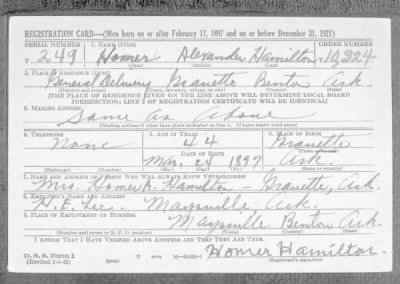 REGISTRATION CARD—(Men born on or after February 17, 1897 and on or before December 31, 1921)
SERIAL NUMBER 1. NAME (Print) ORDER NUMBER
T 249 Homer Alexander Hamilton 10324
(First) (Middle) (Last)
2. PLACE OF RESIDENCE (Print)
General Delivery Gravette Benton Ark.
(Number and street) (Town, township, village, or city) (County) (State)
[THE PLACE OF RESIDENCE GIVEN ON THE LINE ABOVE WILL DETERMINE LOCAL BOARD
JURISDICTION; LINE 2 OF REGISTRATION CERTIFICATE WILL BE IDENTICAL]
3. MAILING ADDRESS
Same as above
[Mailing address if other than place indicated on line 2. If same insert word same]
4. TELEPHONE 5. AGE IN YEARS 6. PLACE OF BIRTH
None 44 Gravette
DATE OF BIRTH
Mar. 24 1897 Ark.
(Exchange) (Number) (Mo.) (Day) (Yr.) (State or country)
7. NAME AND ADDRESS OF PERSON WHO WILL ALWAYS KNOW YOUR ADDRESS
Mrs. Homer A. Hamilton - Gravette, Ark.
8. EMPLOYER'S NAME AND ADDRESS
Maysville, Ark.
9. PLACE OF EMPLOYMENT OR BUSINESS
Maysville Benton Ark.
(Number and street or R. F. D. number) (Town) (County) (State)
I AFFIRM THAT I HAVE VERIFIED ABOVE ANSWERS AND THAT THEY ARE TRUE.
D. S. S. Form 1
(Revised 1-1-42) (over) 16—21630-1 Homer Hamilton
(Registrant's signature)